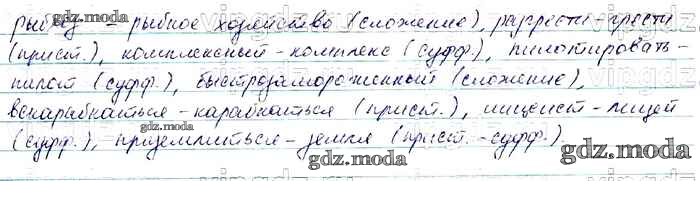 рыбхоз - рыбное хозяйство (сложение), разгрести - грести
(прист.), комплексный - комплекс (суфф.), пилотировать -
пилот (суфф.), быстрозамороженный (сложение),
вскарабкаться - карабкаться (прист.), лицеист - лицей
(суфф.), приземлиться - земля (прист.-суфф.).
gdz.moda
gdz.moda
gdz.moda
gdz.moda
gdz.moda